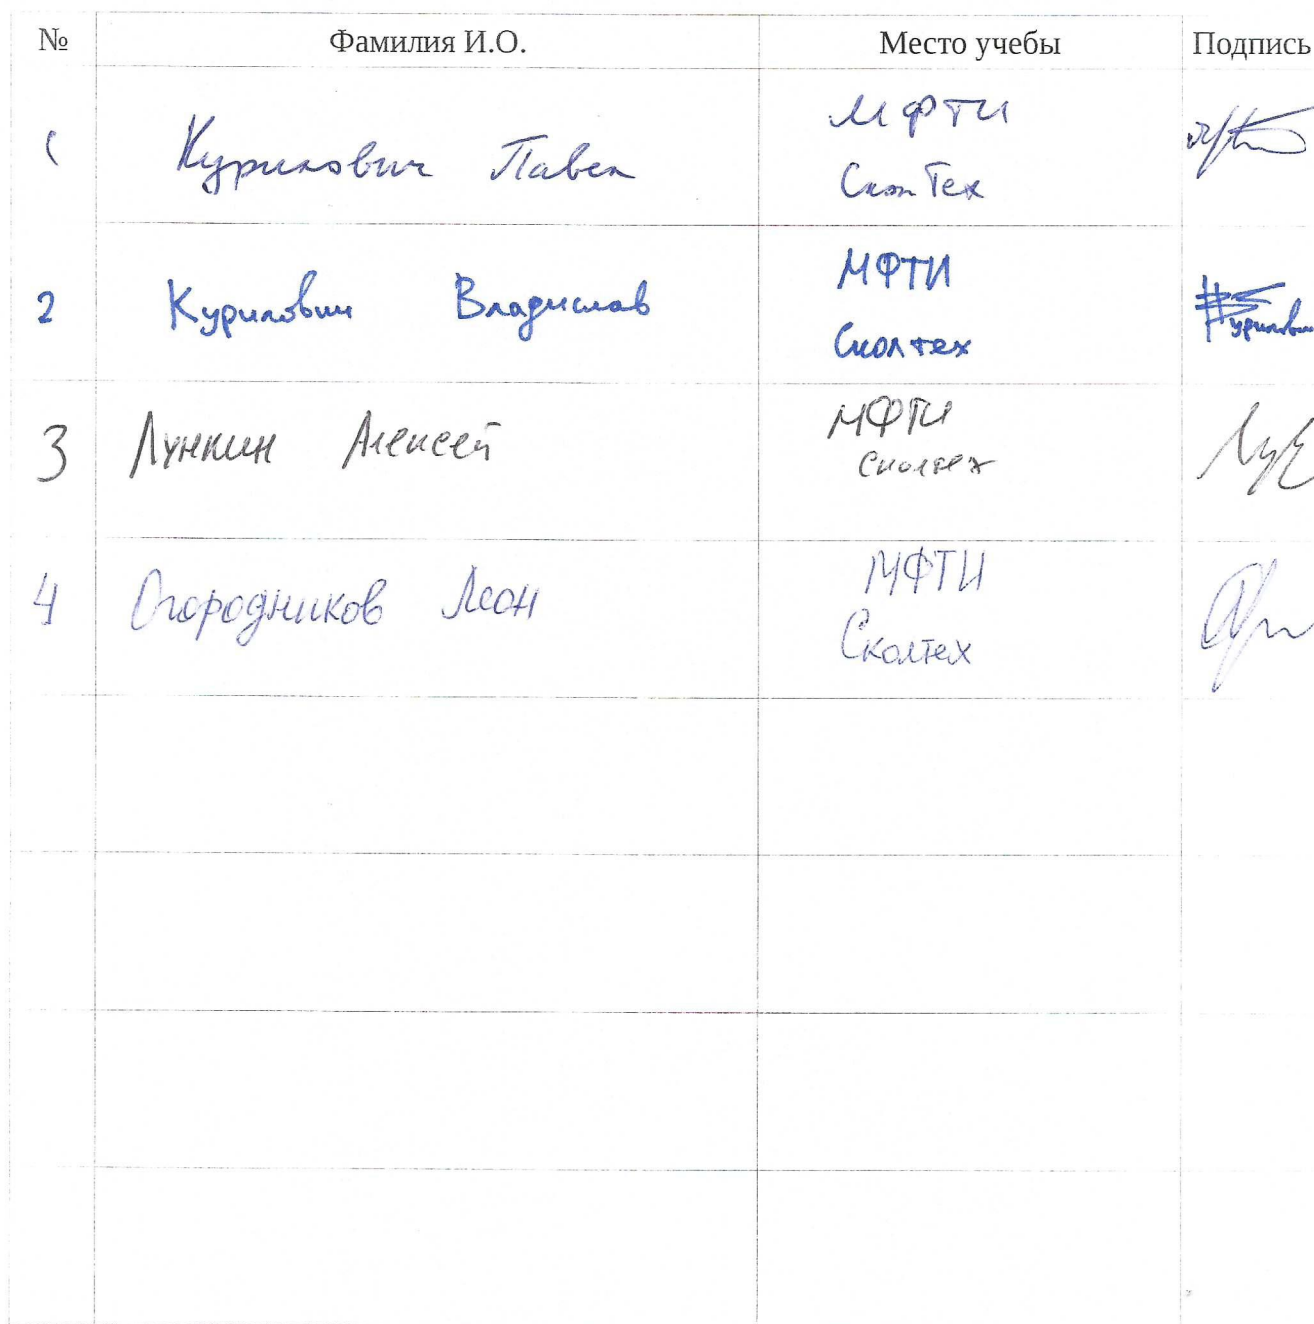 № Фамилия И.О. Место учебы Подпись
1 Курилович Павел МФТИ
СколТех
2 Курилович Владислав МФТИ
Сколтех
3 Лункин Алексей МФТИ
Сколтех
4 Огородников Леон МФТИ
Сколтех